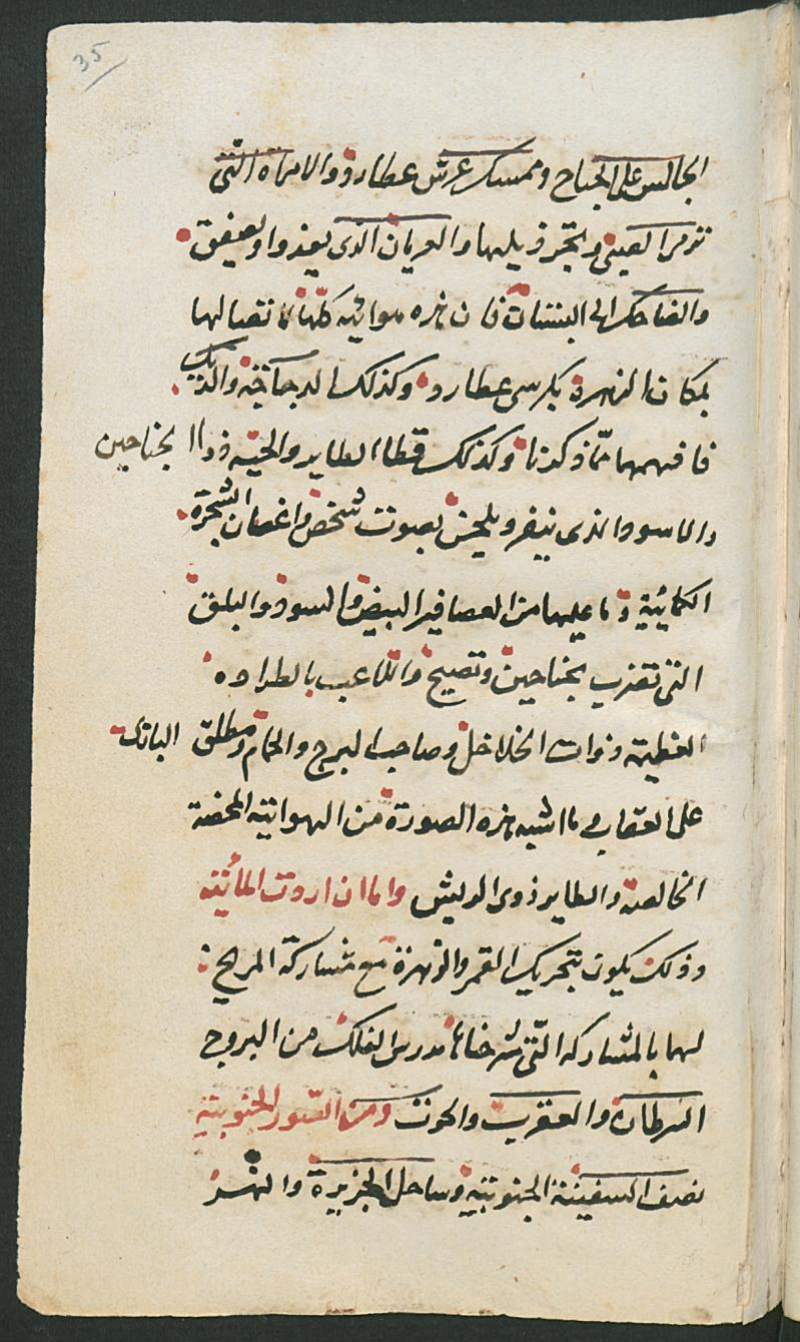 35
الجالس على الجناح وممسك عرش عطارد والامراة التى
تومر العينى وتجر ذيلها والعريان الذى يعدوا ويصفق
والضاحك الى البنات فان هذه هوائيه كلها لاتصالها
بمكان الزهرة بكرسى عطارد وكذلك الدجاجة والديك
فافهمها مما ذكرنا وكذلك قطا الطاير والحية ذو الجناحين
والاسود الذى ينفر ويلحن بصوت شخص واغصان الشجرة
وما عليها من العصافير البيض والسود والبلق
التى تضرب بجناحين وتصيح واللاعب بالطراده
ذوات الخلاخل وصاحب البرج والحمام ومطلق البازى
على العقاب وما اشبه هذه الصورة من الهوائية المحضة
الخالصة والطاير ذوى الريش واما ان اردت المائية
وذلك يكون بتحريك القمر والزهرة مع مشاركة المريخ
لها بالمشاركه التى شرحناها مدرس الفلك من البروج
السرطان والعقرب والحوت ومن الصور الجنوبية
نصف السفينة الجنوبية وساحل الجزيرة والنهر